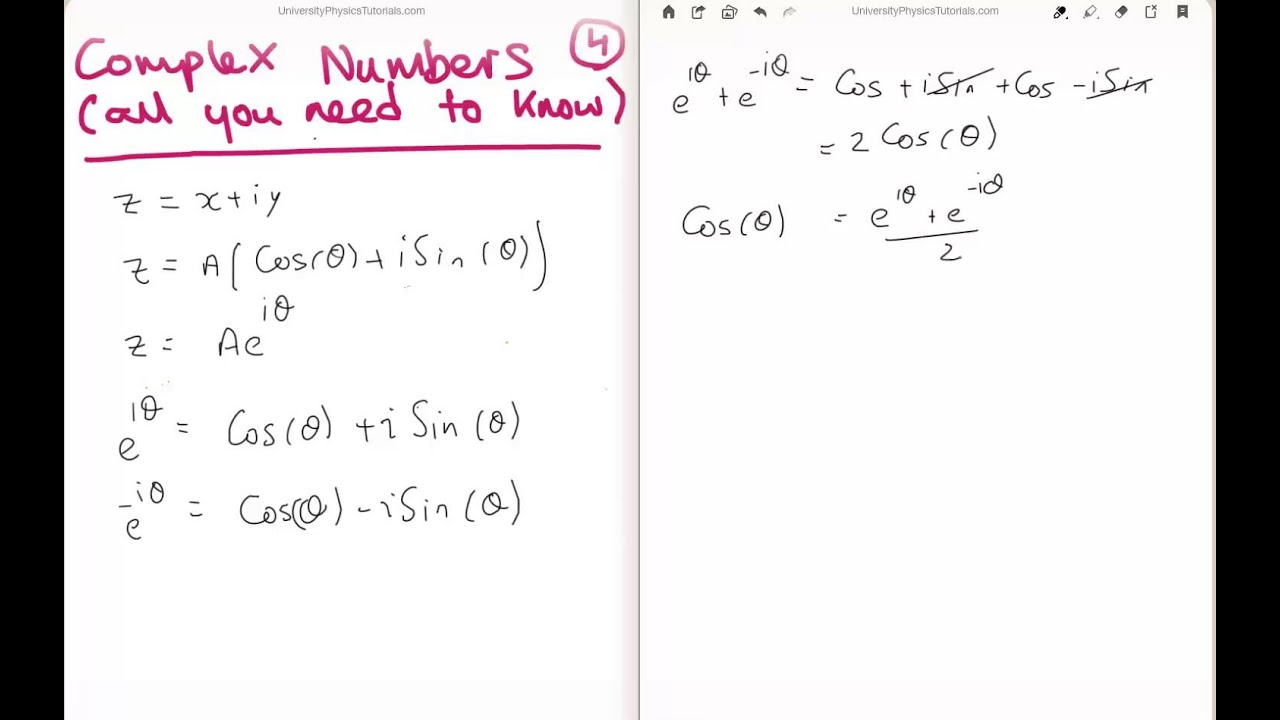 UniversityPhysicsTutorials.com
Complex Numbers ④
(all you need to know)
z = x+iy
z = A(Cos(θ)+iSin(θ))
z = Ae^iθ
e^iθ = Cos(θ) +i Sin(θ)
e^-iθ = Cos(θ) -iSin(θ)
UniversityPhysicsTutorials.com
e^iθ + e^-iθ = Cos +iSin +Cos -iSin
= 2 Cos(θ)
Cos(θ) = e^iθ + e^-iθ
2